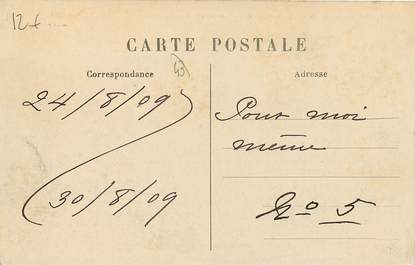 12 €
CARTE POSTALE
Correspondance
Adresse
24/8/09
30/8/09
Pour moi
même
No 5